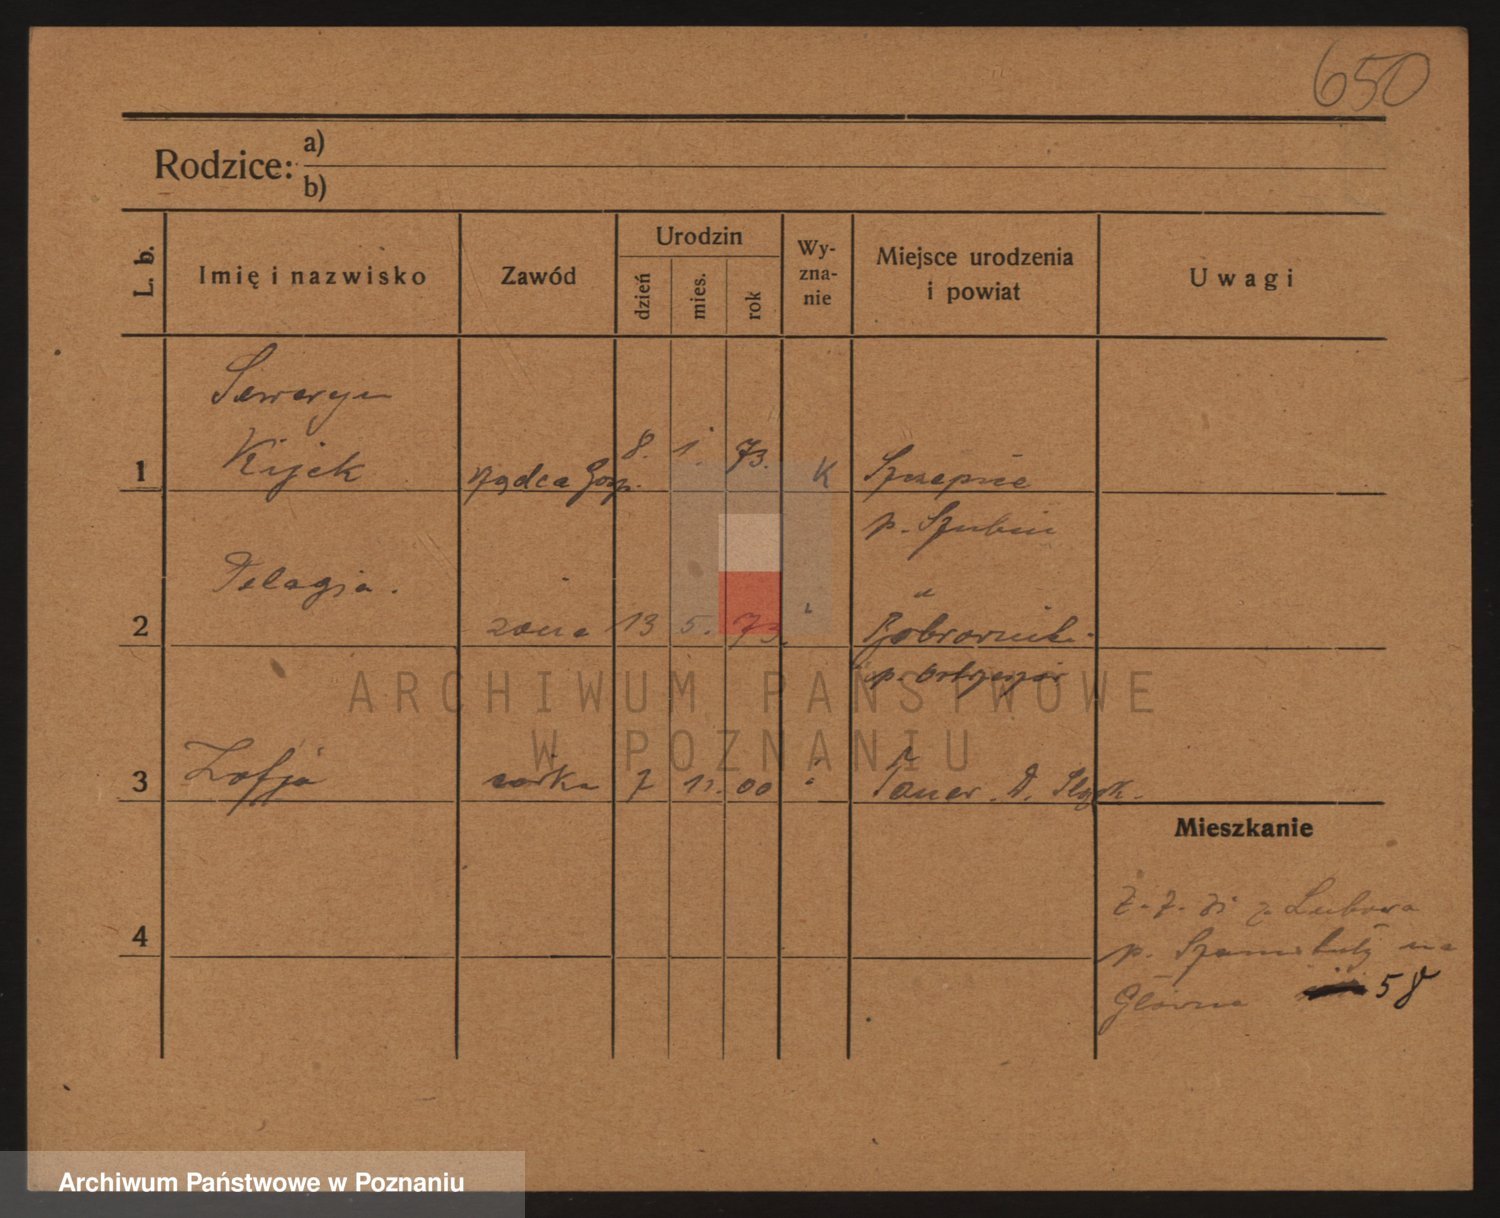 650
Rodzice: a)
b)
L. b.
Imię i nazwisko
Zawód
Urodzin
dzień
mies.
rok
Wy-
zna-
nie
Miejsce urodzenia
i powiat
Uwagi
Seweryn
1 Kijek rządca Gosp. 8. 1. 73. K Szczepice
p. Szubin
Pelagja.
2 żona 13 5. 73. "
3 Zofja córka 7 11. 00 " D. Śląsk.
Mieszkanie
z Lubowa
4
p. Szamotuły na
Główna 58
ARCHIWUM PAŃSTWOWE
W POZNANIU
Archiwum Państwowe w Poznaniu